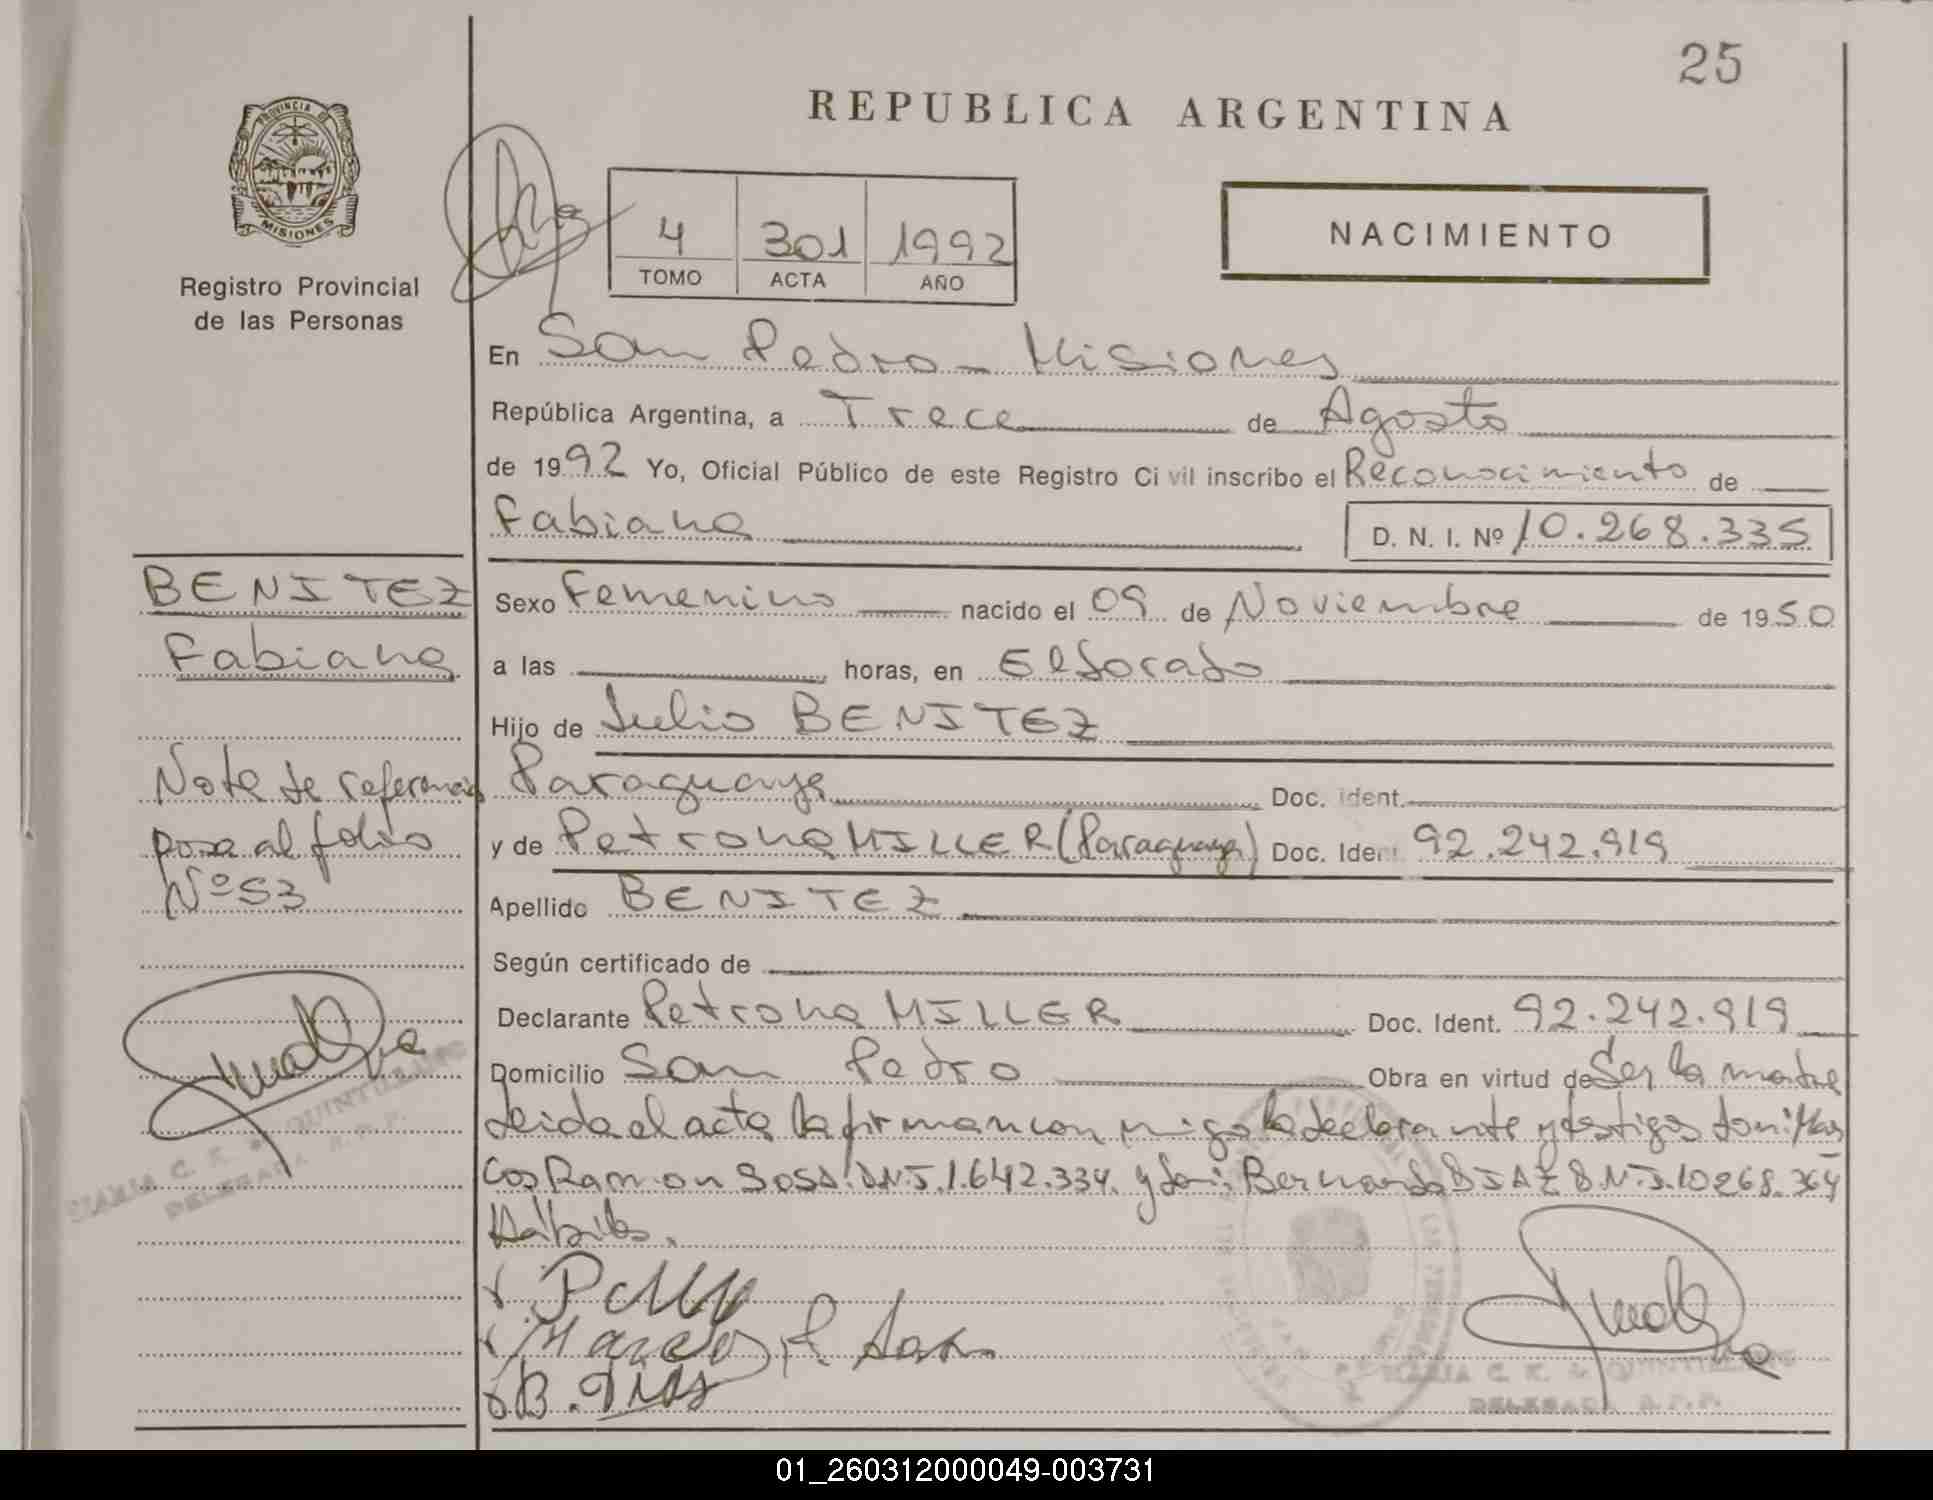 25
REPUBLICA ARGENTINA
PROVINCIA DE
MISIONES
Registro Provincial
de las Personas
4 301 1992
TOMO ACTA AÑO
NACIMIENTO
En San Pedro - Misiones
República Argentina, a Trece de Agosto
de 1992 Yo, Oficial Público de este Registro Civil inscribo el Reconocimiento de
Fabiana D. N. I. Nº 10.268.335
BENITEZ
Fabiana
Nota de referencia
pasa al folio
Nº 53
MARIA C. K. QUINTILIANO
DELEGADA R.P.P.
Sexo Femenino nacido el 09 de Noviembre de 1950
a las horas, en Eldorado
Hijo de Julio BENITEZ
Paraguaya Doc. ident.
y de Petrona MILLER (Paraguaya) Doc. Ident 92.242.919
Apellido BENITEZ
Según certificado de
Declarante Petrona MILLER Doc. Ident. 92.242.919
Domicilio San Pedro Obra en virtud de Ser la madre
Leida el acta la firman con migo la declarante y testigos don: Mar
cos Ramon SOSA D.N.I. 1.642.334. y don: Bernardo DIAZ D.N.I. 10268.364
Hábiles.
Marcos R. Sosa
B. Dias
MARIA C. K. QUINTILIANO
DELEGADA R.P.P.
01_260312000049-003731